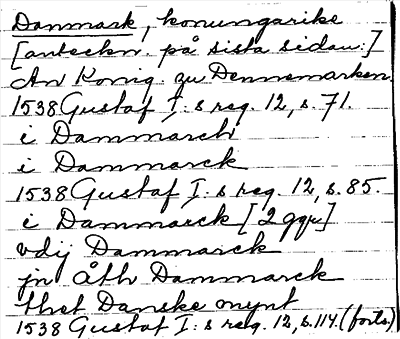 Danmark, konungarike
[anteckn. på sista sidan:]
An Konig. zu Dennemarken.
1538 Gustaf I:s reg. 12, s. 71.
i Dammarch
i Dammarck
1538 Gustaf I:s reg. 12, s. 85.
i Dammarck [2 ggr]
vdij Dammarck
jn åth Dammarck
thet Danske mynt
1538 Gustaf I:s reg. 12, s. 114. (forts.)